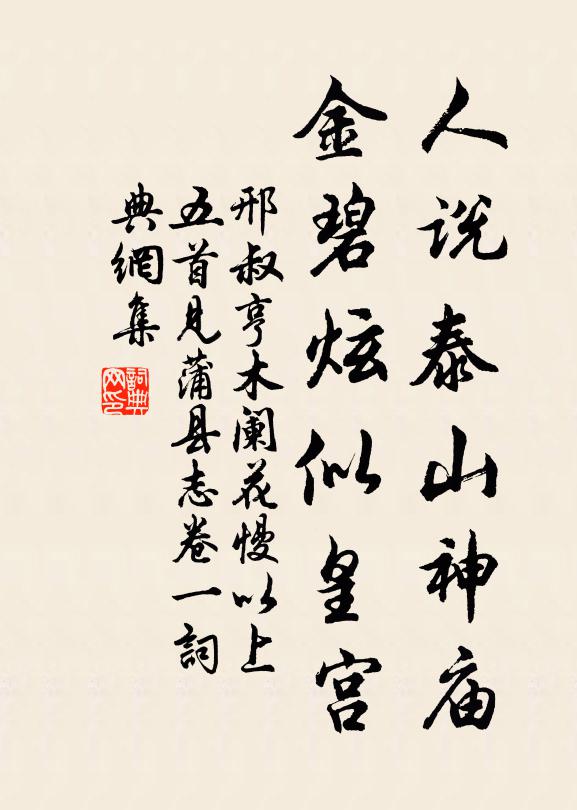 人说泰山神庙
金碧炫似皇宫
邢叔亨木阑花慢以上
五首见蒲县志卷一詞
典網集
詞典
网印